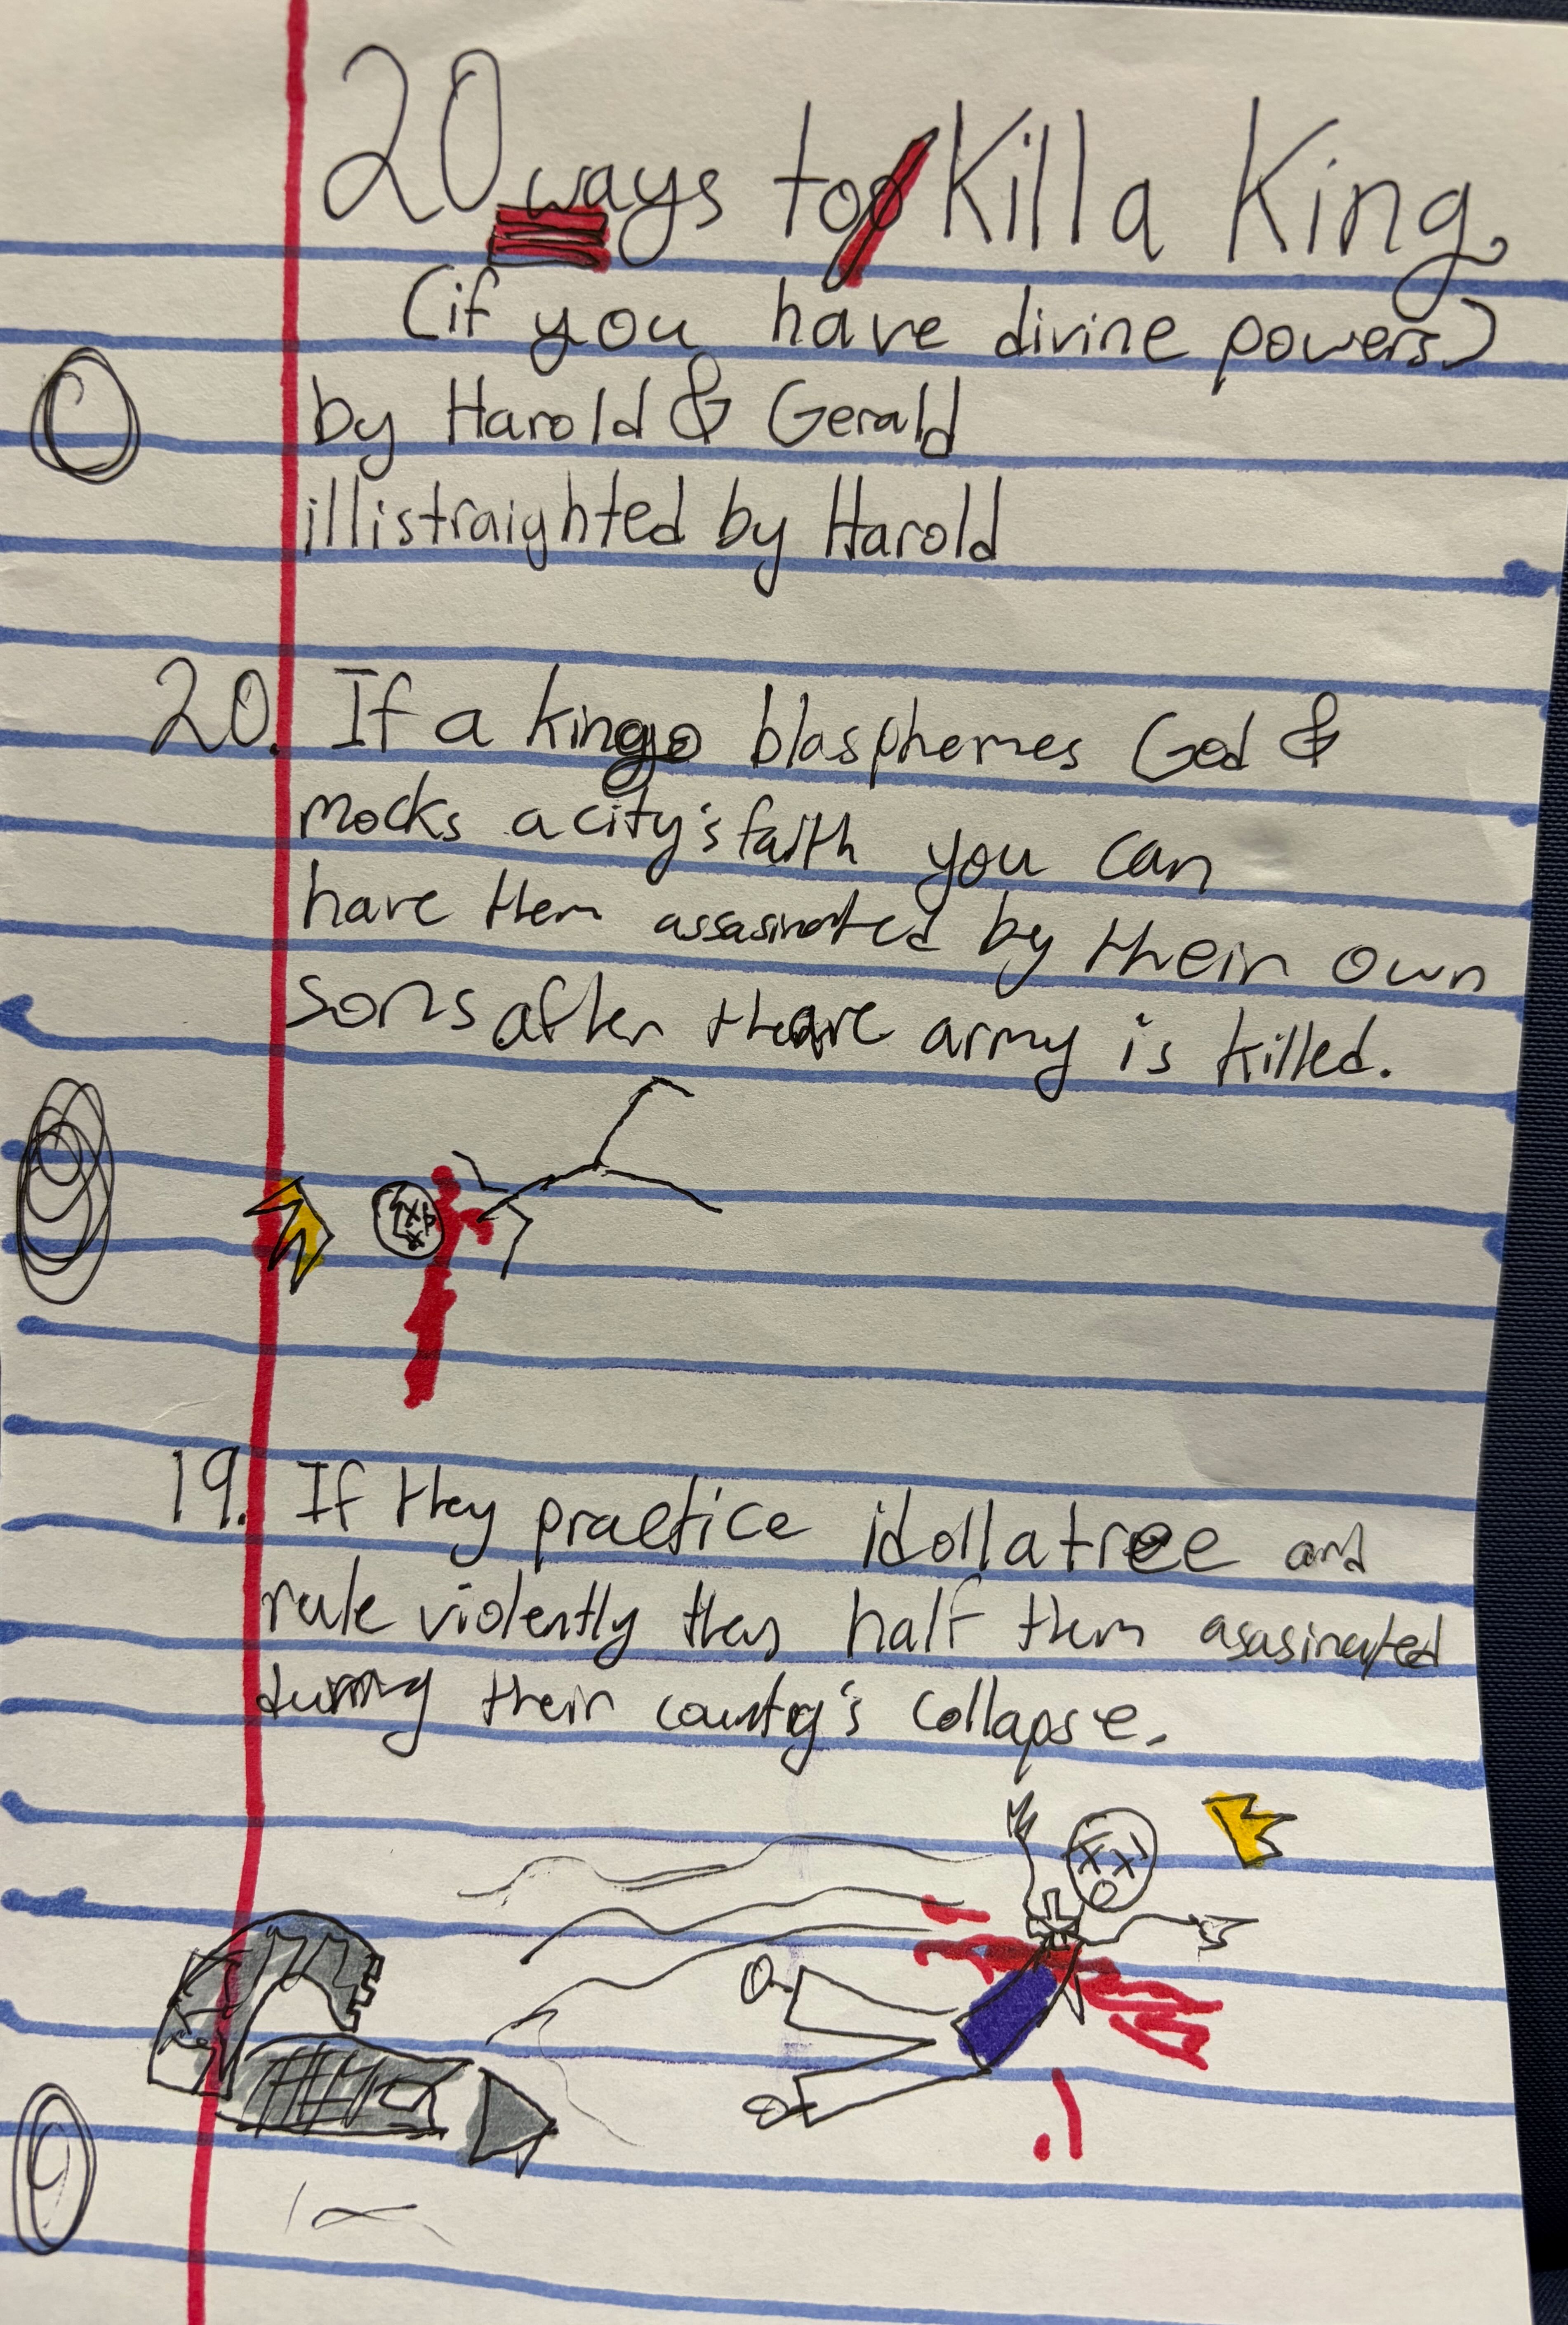 20 ways too Kill a King,
(if you have divine powers)
by Harold & Gerald
illistraighted by Harold
20. If a king blasphemes God &
mocks a city's faith you can
have them assasinated by their own
sons after theare army is killed.
19. If they practice idollatree and
rule violently then half them asasinated
during their country's collapse.